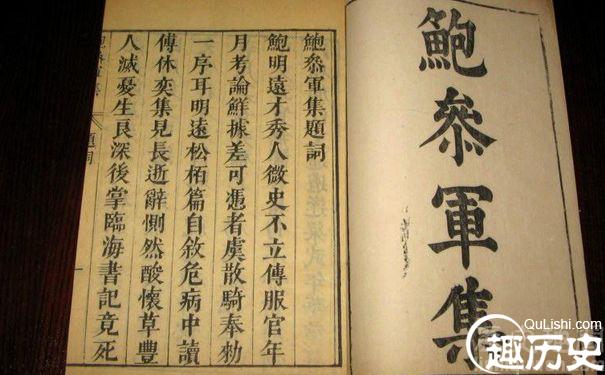 鮑叅軍集
鮑叅軍集題詞
鮑明遠才秀人微史不立傳服官年
月考論鮮據差可憑者虞散騎奉勑
一序耳明遠松栢篇自敘危病中讀
傅休奕集見長逝辭惻然酸懷草豐
人滅憂生良深後掌臨海書記竟死
題詞
QuLishi.com
趣历史